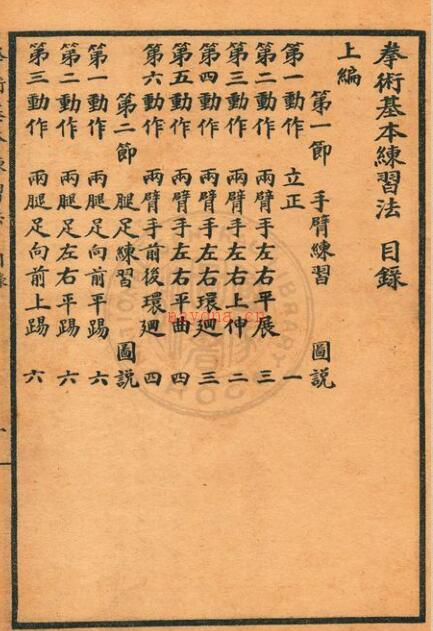 拳術基本練習法 目錄
上編
第一節 手臂練習 圖説
第一動作 立正 一
第二動作 兩臂手左右平展 三
第三動作 兩臂手左右上伸 二
第四動作 兩臂手左右環迴 三
第五動作 兩臂手左右平曲 四
第六動作 兩臂手前後環迴 四
第二節 腿足練習 圖説
第一動作 兩腿足向前平踢 六
第二動作 兩腿足左右平踢 六
第三動作 兩腿足向前上踢 六
nayona.cn
LIBRARY